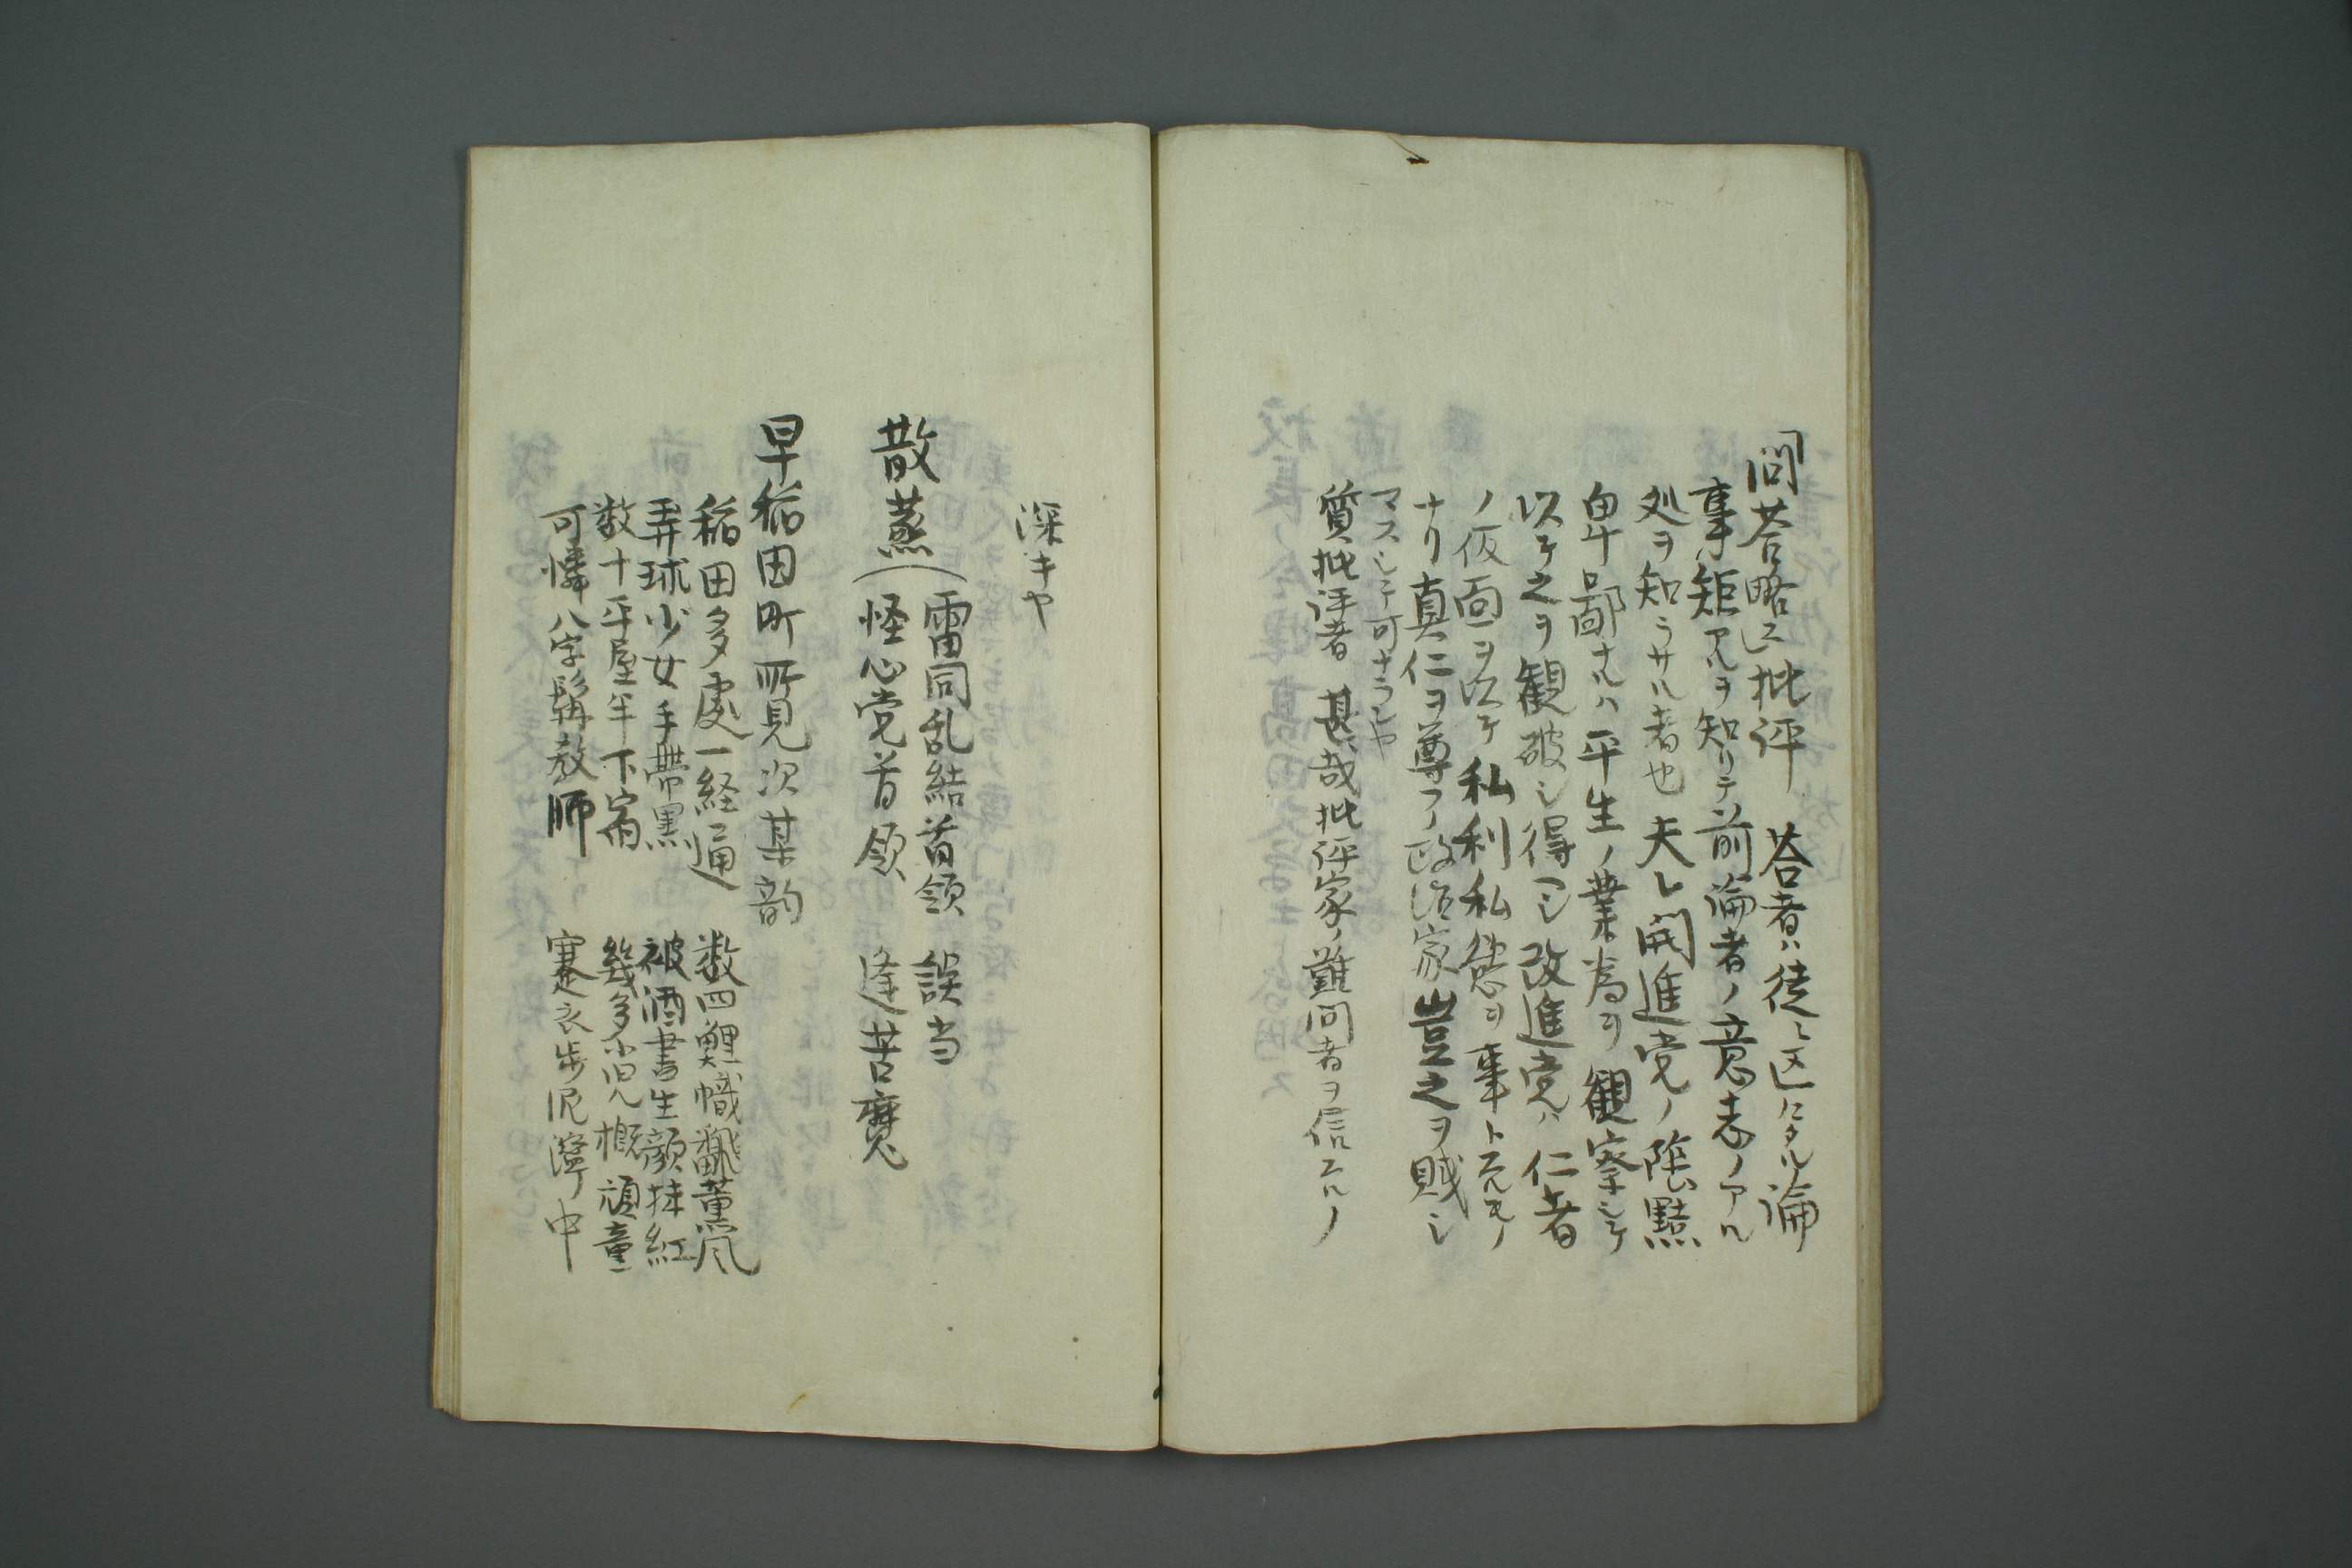 「問答略」ニ批評 答者ハ徒ニ区々タル論
事ノ矩アルヲ知リテ前論者ノ意志ノアル
処ヲ知ラサル者也夫レ開進党ノ陰黠
卑鄙ナルハ平生ノ業為ヲ観察シテ
以テ之ヲ観破シ得ヘシ改進党ハ仁者
ノ仮面ヲ以テ私利私慾ヲ事トスルモノ
ナリ真仁ヲ尊フノ政治家豈之ヲ賤シ
マスシテ可ナランヤ
質批評者 甚哉批評家ノ難問者ヲ信スルノ
深キヤ
散蒸(雷同乱結首領 誤当
怪心党首領 逢苦魔
早稲田町所見次某韵
稲田多處一経通 数四鯉幟飜薫風
弄球少女手帶黒 被酒書生顔抹紅
数十平屋年下 幾多小児概頑童
可憐八字鬚教師 褰衣歩泥濘中